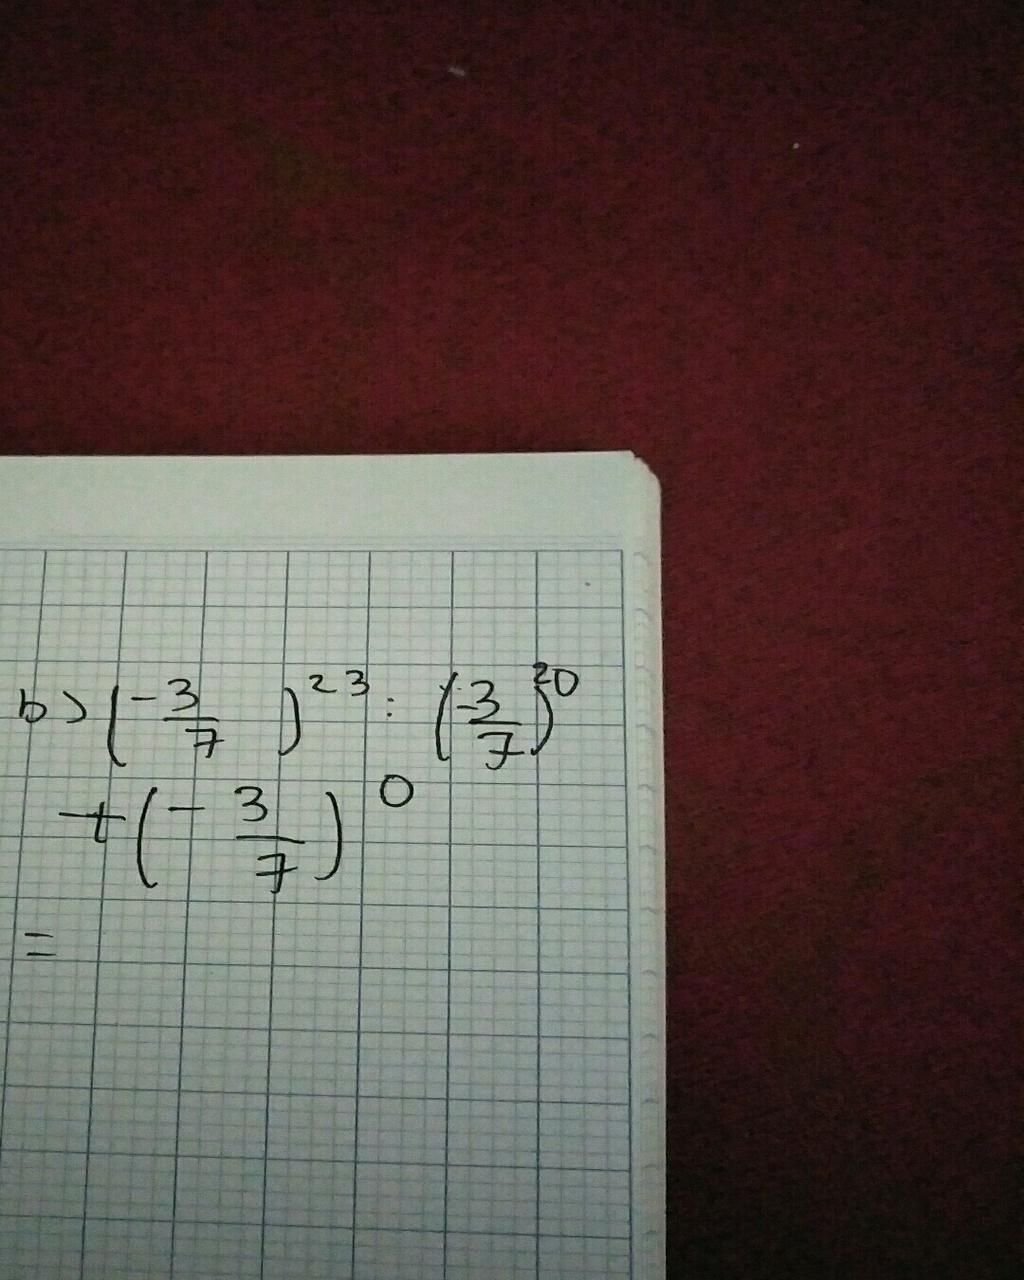 b) (-3/7)^23 : (-3/7)^20
+(-3/7)^0
=